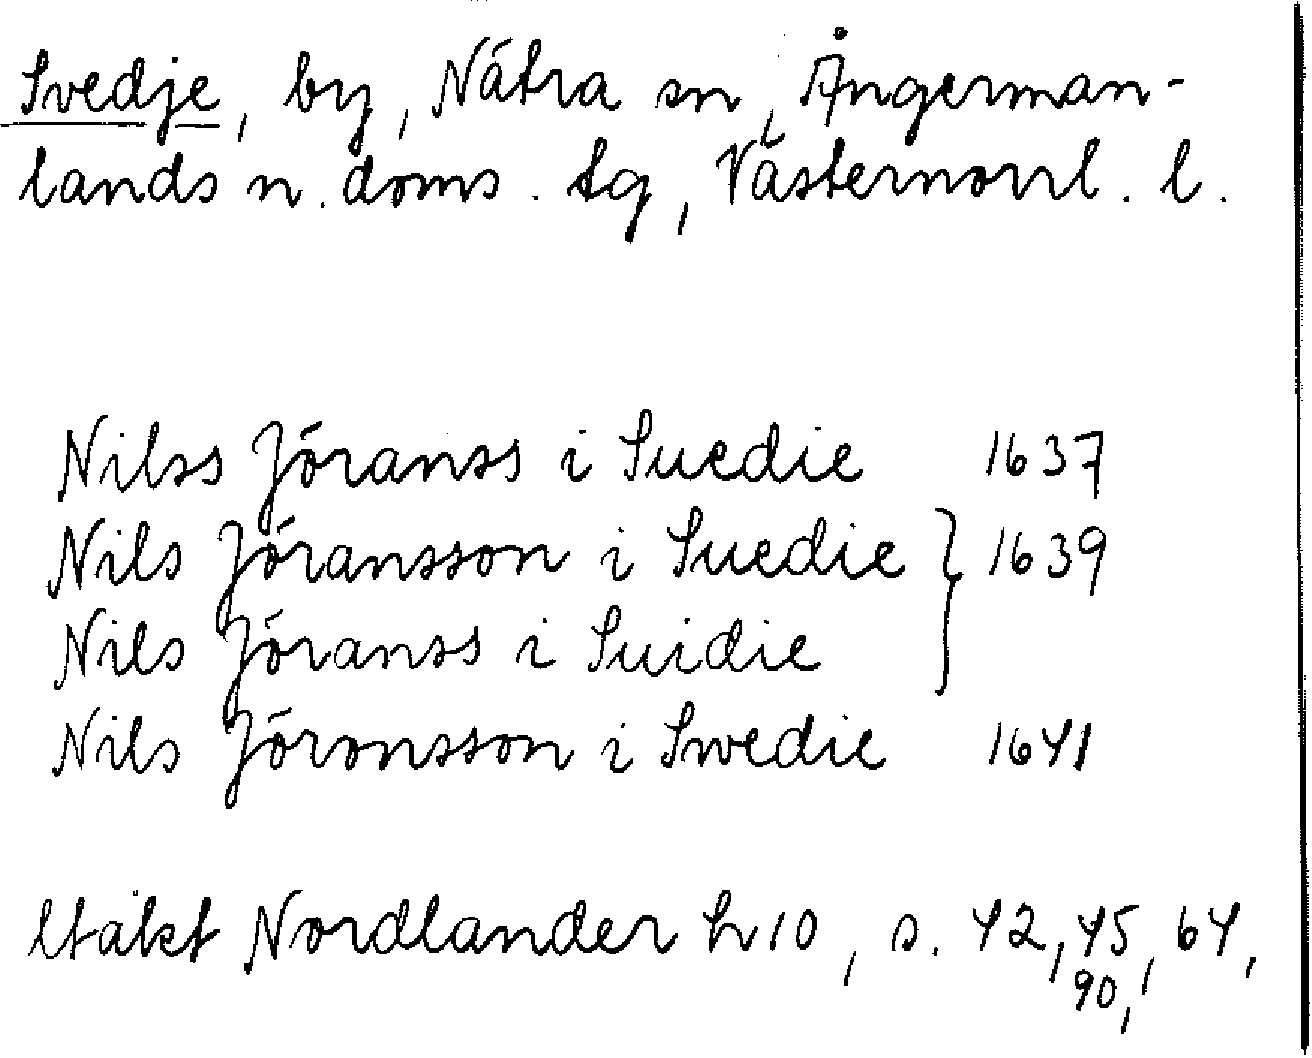 Svedje, by, Nätra sn, Ångerman-
lands n. doms. tg, Västernorrl. l.
Nilss Jöranss i Suedie 1637
Nils Jöransson i Suedie } 1639
Nils Jöranss i Suidie
Nils Jöronsson i Swedie 1641
Utdkt Nordlander h 10, s. 42, 45, 64,
90,